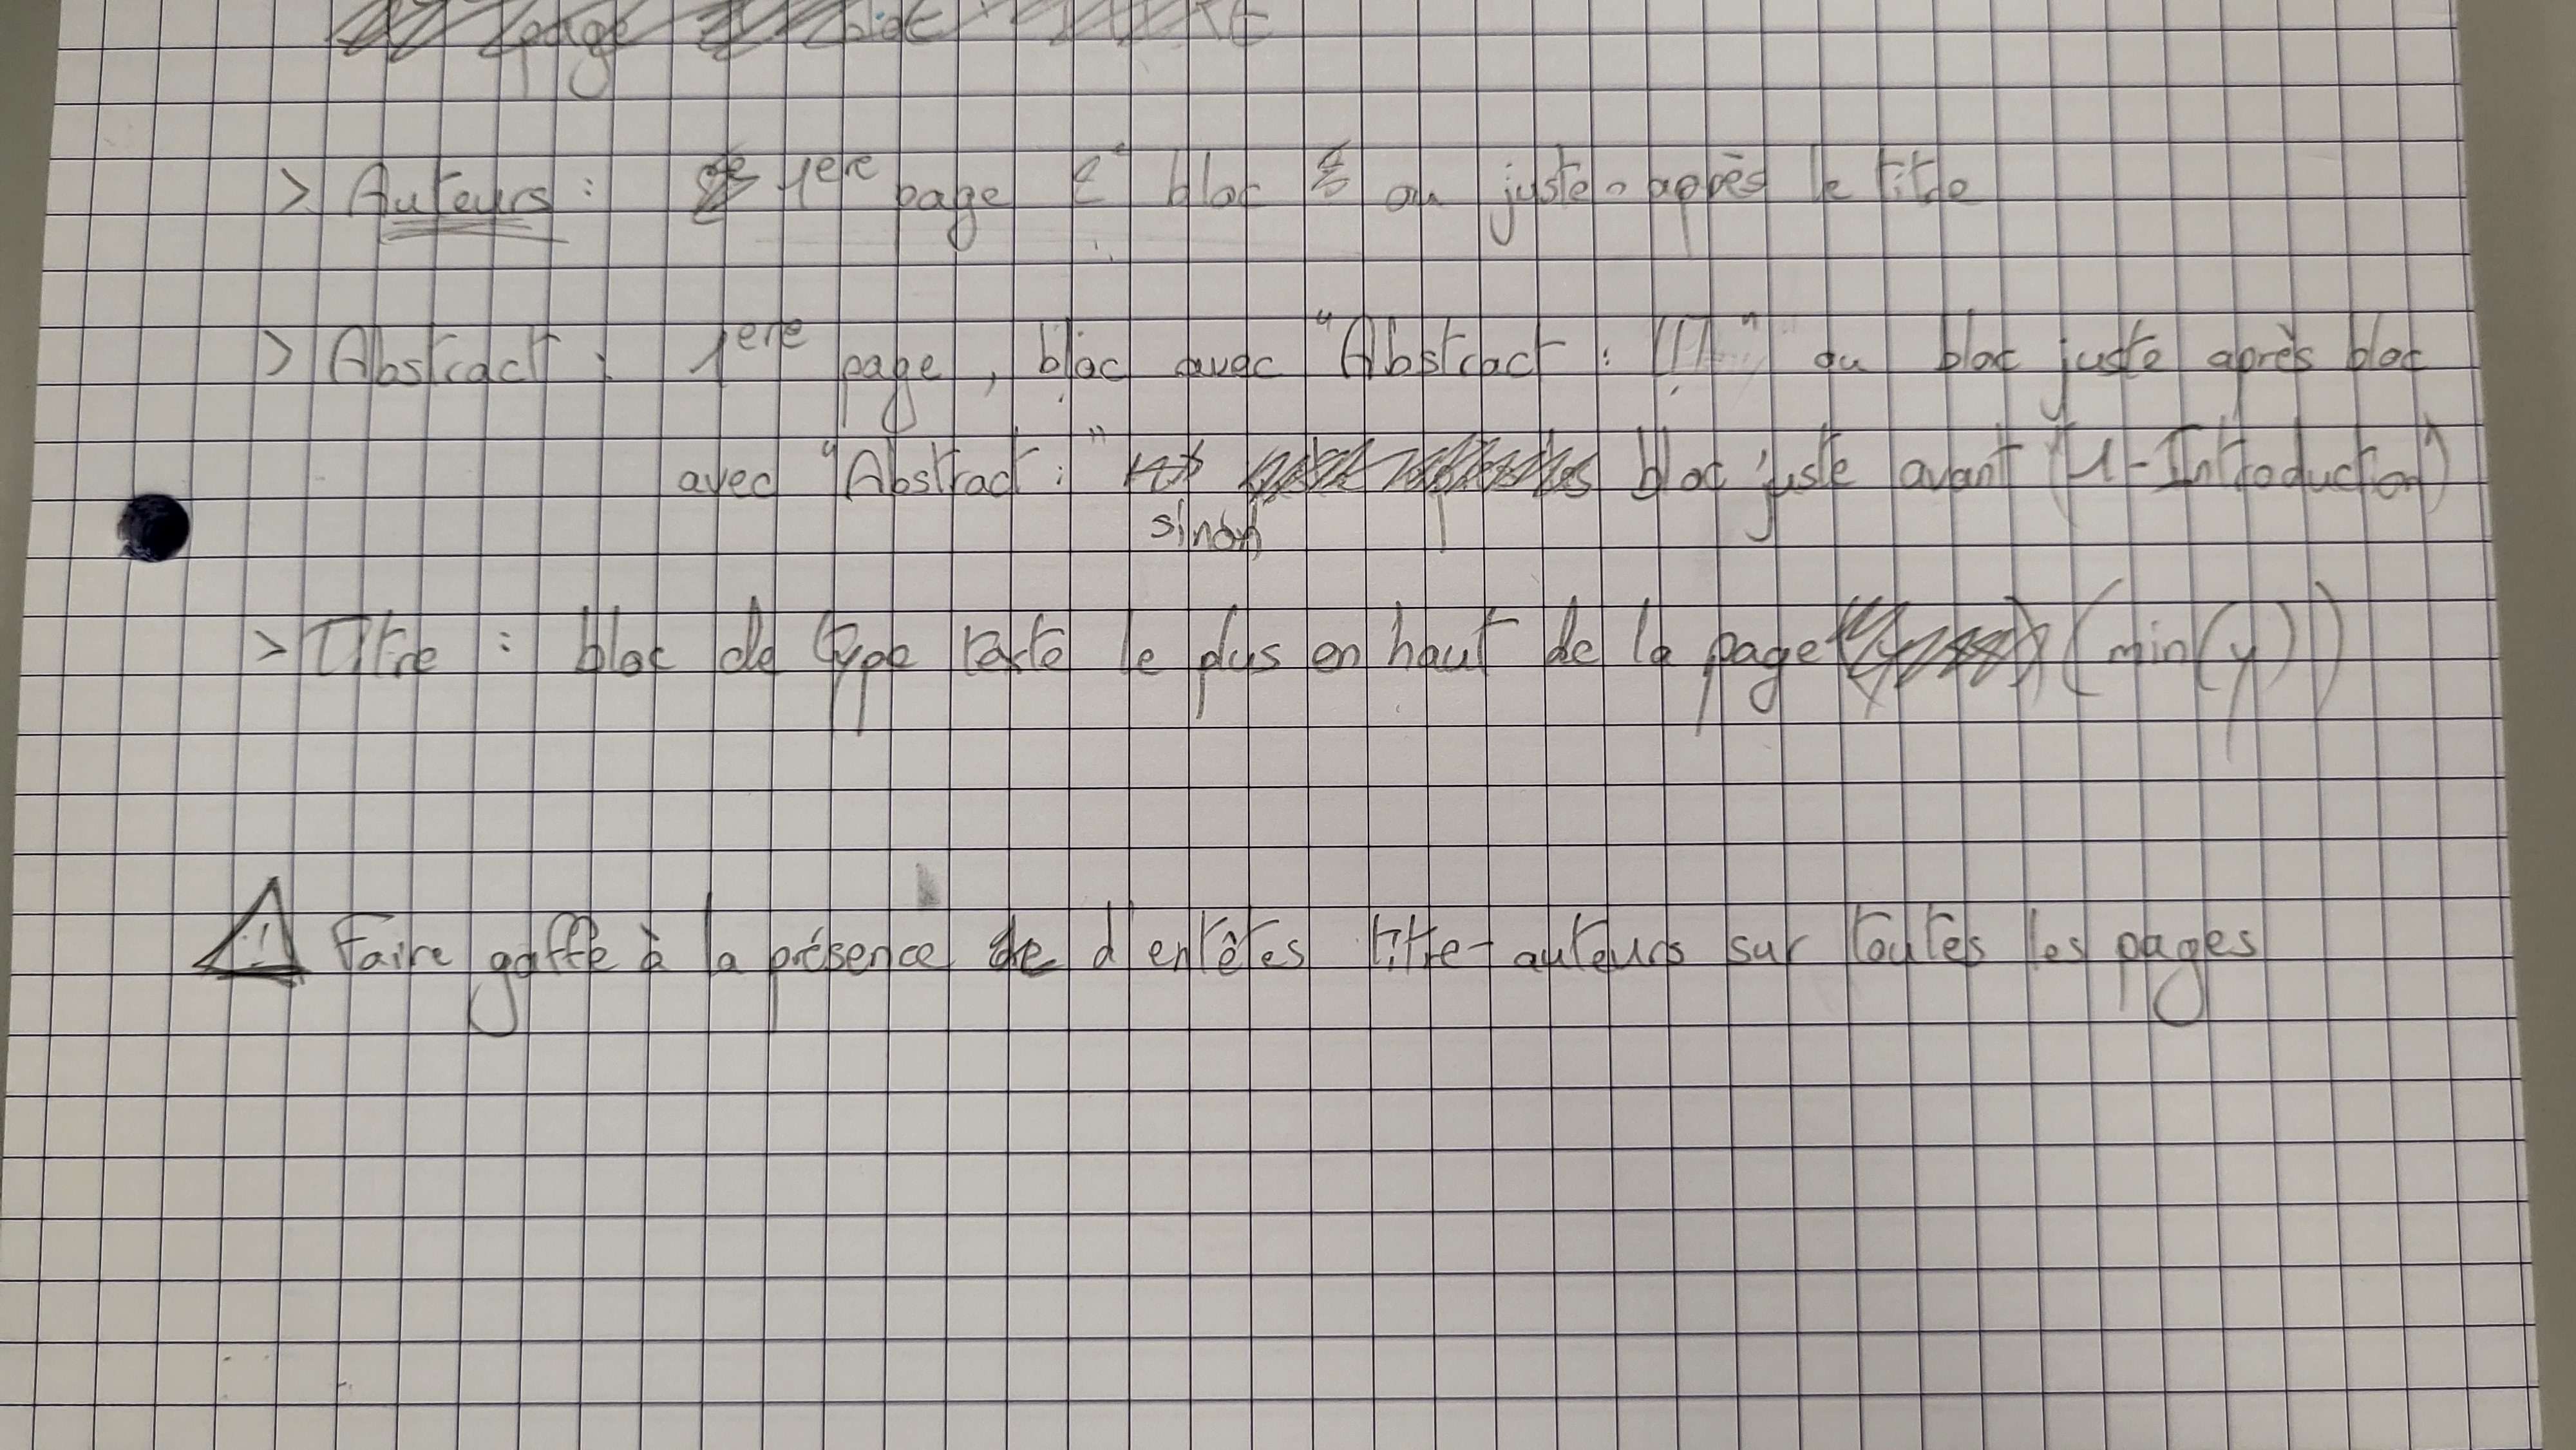 page
> Auteurs : 1ere page 2e bloc ou juste après le titre
> Abstract : 1ere page, bloc avec "Abstract : [...]" ou bloc juste après bloc
avec "Abstract :" sinon bloc juste avant "1-Introduction"
> Titre : bloc de type texte le plus en haut de la page (min(y))
⚠ Faire gaffe à la présence d'entêtes titre-auteurs sur toutes les pages